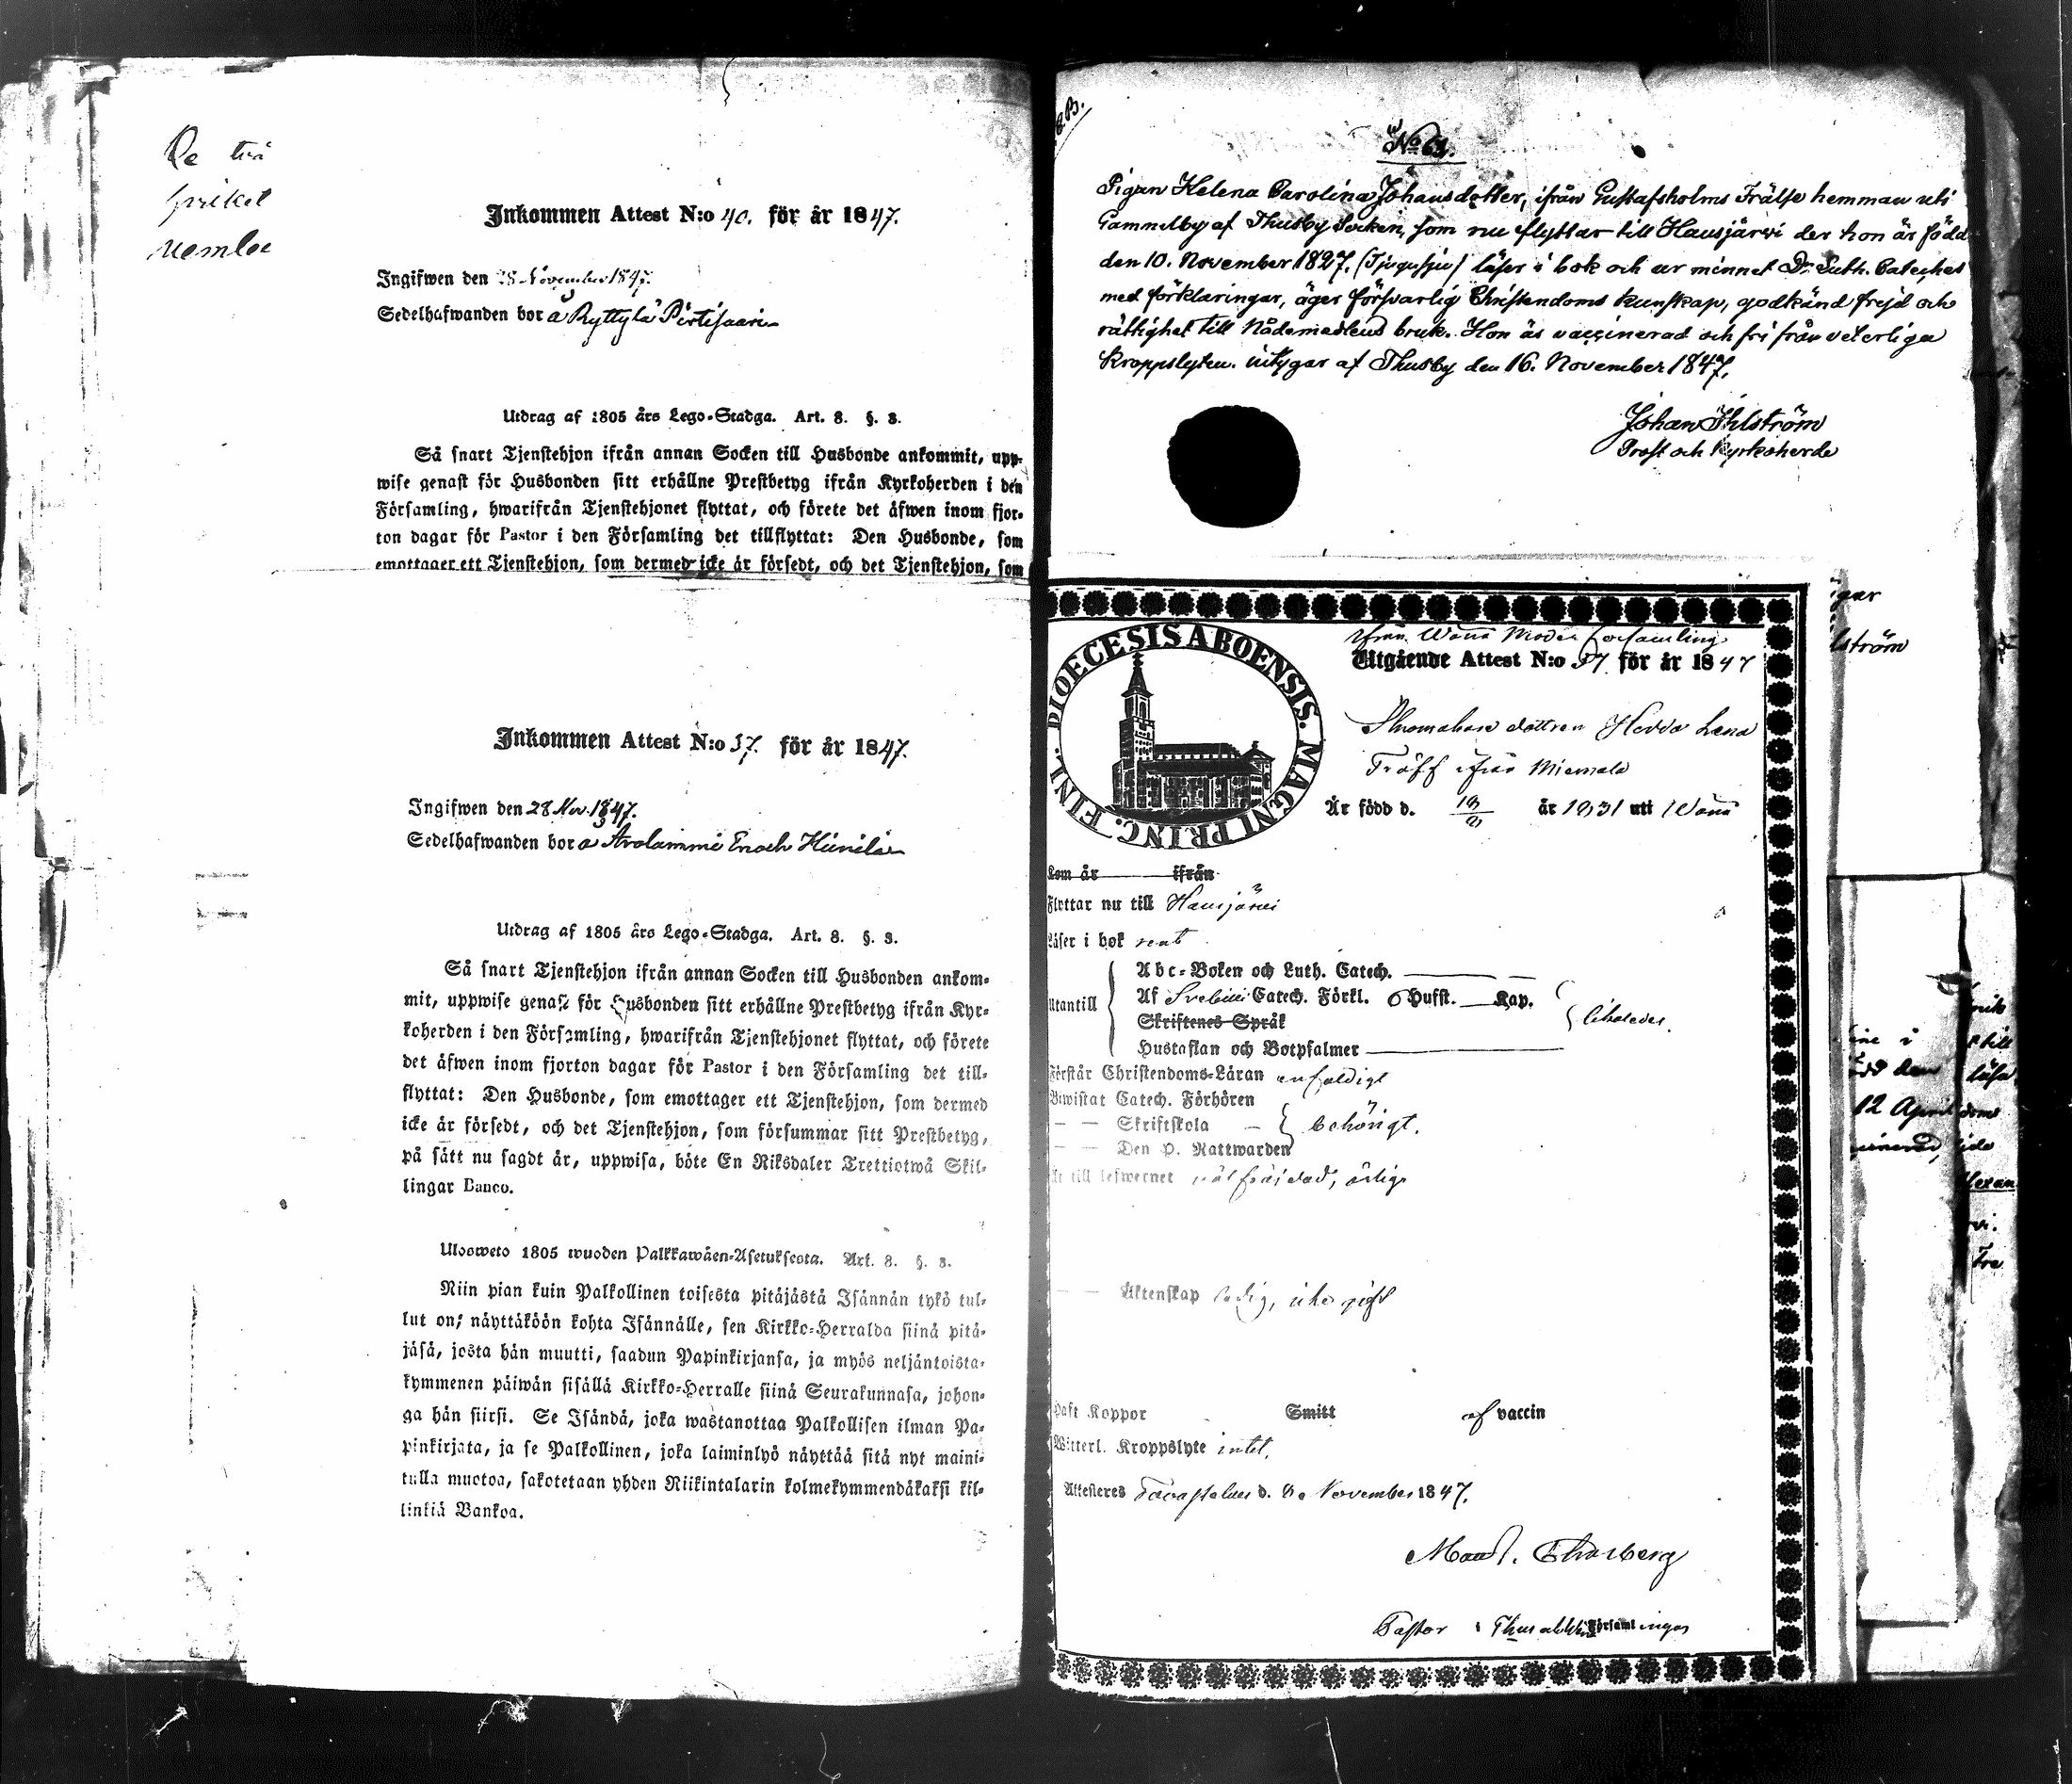 De två
Inkommen Attest N:o 40. för år 1847.
Ingifwen den 28 November 1847.
Sedelhafwanden bor å Ryttylä Pirtisaari
Utdrag af 1805 års Lego-Stadga. Art. 8. §. 3.
Så snart Tjenstehjon ifrån annan Socken till Husbonde ankommit, upp-
wise genast för Husbonden sitt erhållne Prestbetyg ifrån Kyrkoherden i den
Församling, hwarifrån Tjenstehjonet flyttat, och förete det äfwen inom fjor-
ton dagar för Pastor i den Församling det tillflyttat: Den Husbonde, som
emottager ett Tjenstehjon, som dermed icke är försedt, och det Tjenstehjon, som
Inkommen Attest N:o 37. för år 1847.
Ingifwen den 28 Nov. 1847.
Sedelhafwanden bor å Arolammi Enoch Heinilä
Utdrag af 1805 års Lego-Stadga. Art. 8. §. 3.
Så snart Tjenstehjon ifrån annan Socken till Husbonden ankom-
mit, uppwise genast för Husbonden sitt erhållne Prestbetyg ifrån Kyr-
koherden i den Församling, hwarifrån Tjenstehjonet flyttat, och förete
det äfwen inom fjorton dagar för Pastor i den Församling det till-
flyttat: Den Husbonde, som emottager ett Tjenstehjon, som dermed
icke är försedt, och det Tjenstehjon, som försummar sitt Prestbetyg,
på sätt nu sagdt är, uppwisa, böte En Riksdaler Trettiotwå Skil-
lingar Banco.
Ulosweto 1805 wuoden Palkkawäen-Asetuksesta. Art. 8. §. 3.
Niin pian kuin Palkollinen toisesta pitäjästä Isännän tykö tul-
lut on; näyttäköön kohta Isännälle, sen Kirkko-Herralda siinä pitä-
jäsä, josta hän muutti, saadun Papinkirjansa, ja myös neljäntoista-
kymmenen päiwän sisällä Kirkko-Herralle siinä Seurakunnasa, johon-
ga hän siirsi. Se Isändä, joka wastanottaa Palkollisen ilman Pa-
pinkirjata, ja se Palkollinen, joka laiminlyö näyttää sitä nyt maini-
tulla muotoa, sakotetaan yhden Riikintalarin kolmekymmendäkaksi kil-
linkiä Bankoa.
No 61.
Pigan Helena Carolina Johansdotter, ifrån Gustafsholms Frälse hemman uti
Gammelby af Thusby Socken, som nu flyttar till Hausjärwi der hon är född
den 10. November 1827. (Tjugusju) läser i bok och ur minnet Dr. Luth. Cateches
med förklaringar, äger försvarlig Christendoms kunskap, godkänd frejd och
rättighet till Nådemedlens bruk. Hon är vaccinerad och fri från veterliga
Kroppslyten. intygar af Thusby den 16. November 1847.
Johan Ihlström
Prost och Kyrkoherde
ifrån Wånå Moder församling
Utgående Attest N:o 57 för år 1847
DIOECESIS ABOENSIS. MAGNI PRINC. FINL.
dottren Hedda Lena
ifrån Miemala
Är född d. år 1831 uti Wånå
Kom år ifrån
Flyttar nu till Hausjärvi
Läser i bok rent
Utantill
Abc-Boken och Luth. Catech.
Af Svebilii Catech. Förkl. 6 Hufst. Kap.
Skriftenes Språk
Hustaflan och Botpsalmer
Förstår Christendoms-Läran enfaldigt
Bewistat Catech. Förhören
— — Skriftskola — behörigt.
— — Den H. Nattwarden
Är till lefwernet wälfräjdad, ärlig
— — Äktenskap ledig, icke gift
Haft Koppor Smitt af vaccin
Witterl. Kroppslyte intet.
Attesteres Tavastehus d. November 1847.
Pastor i Församlingen
ström
12 April